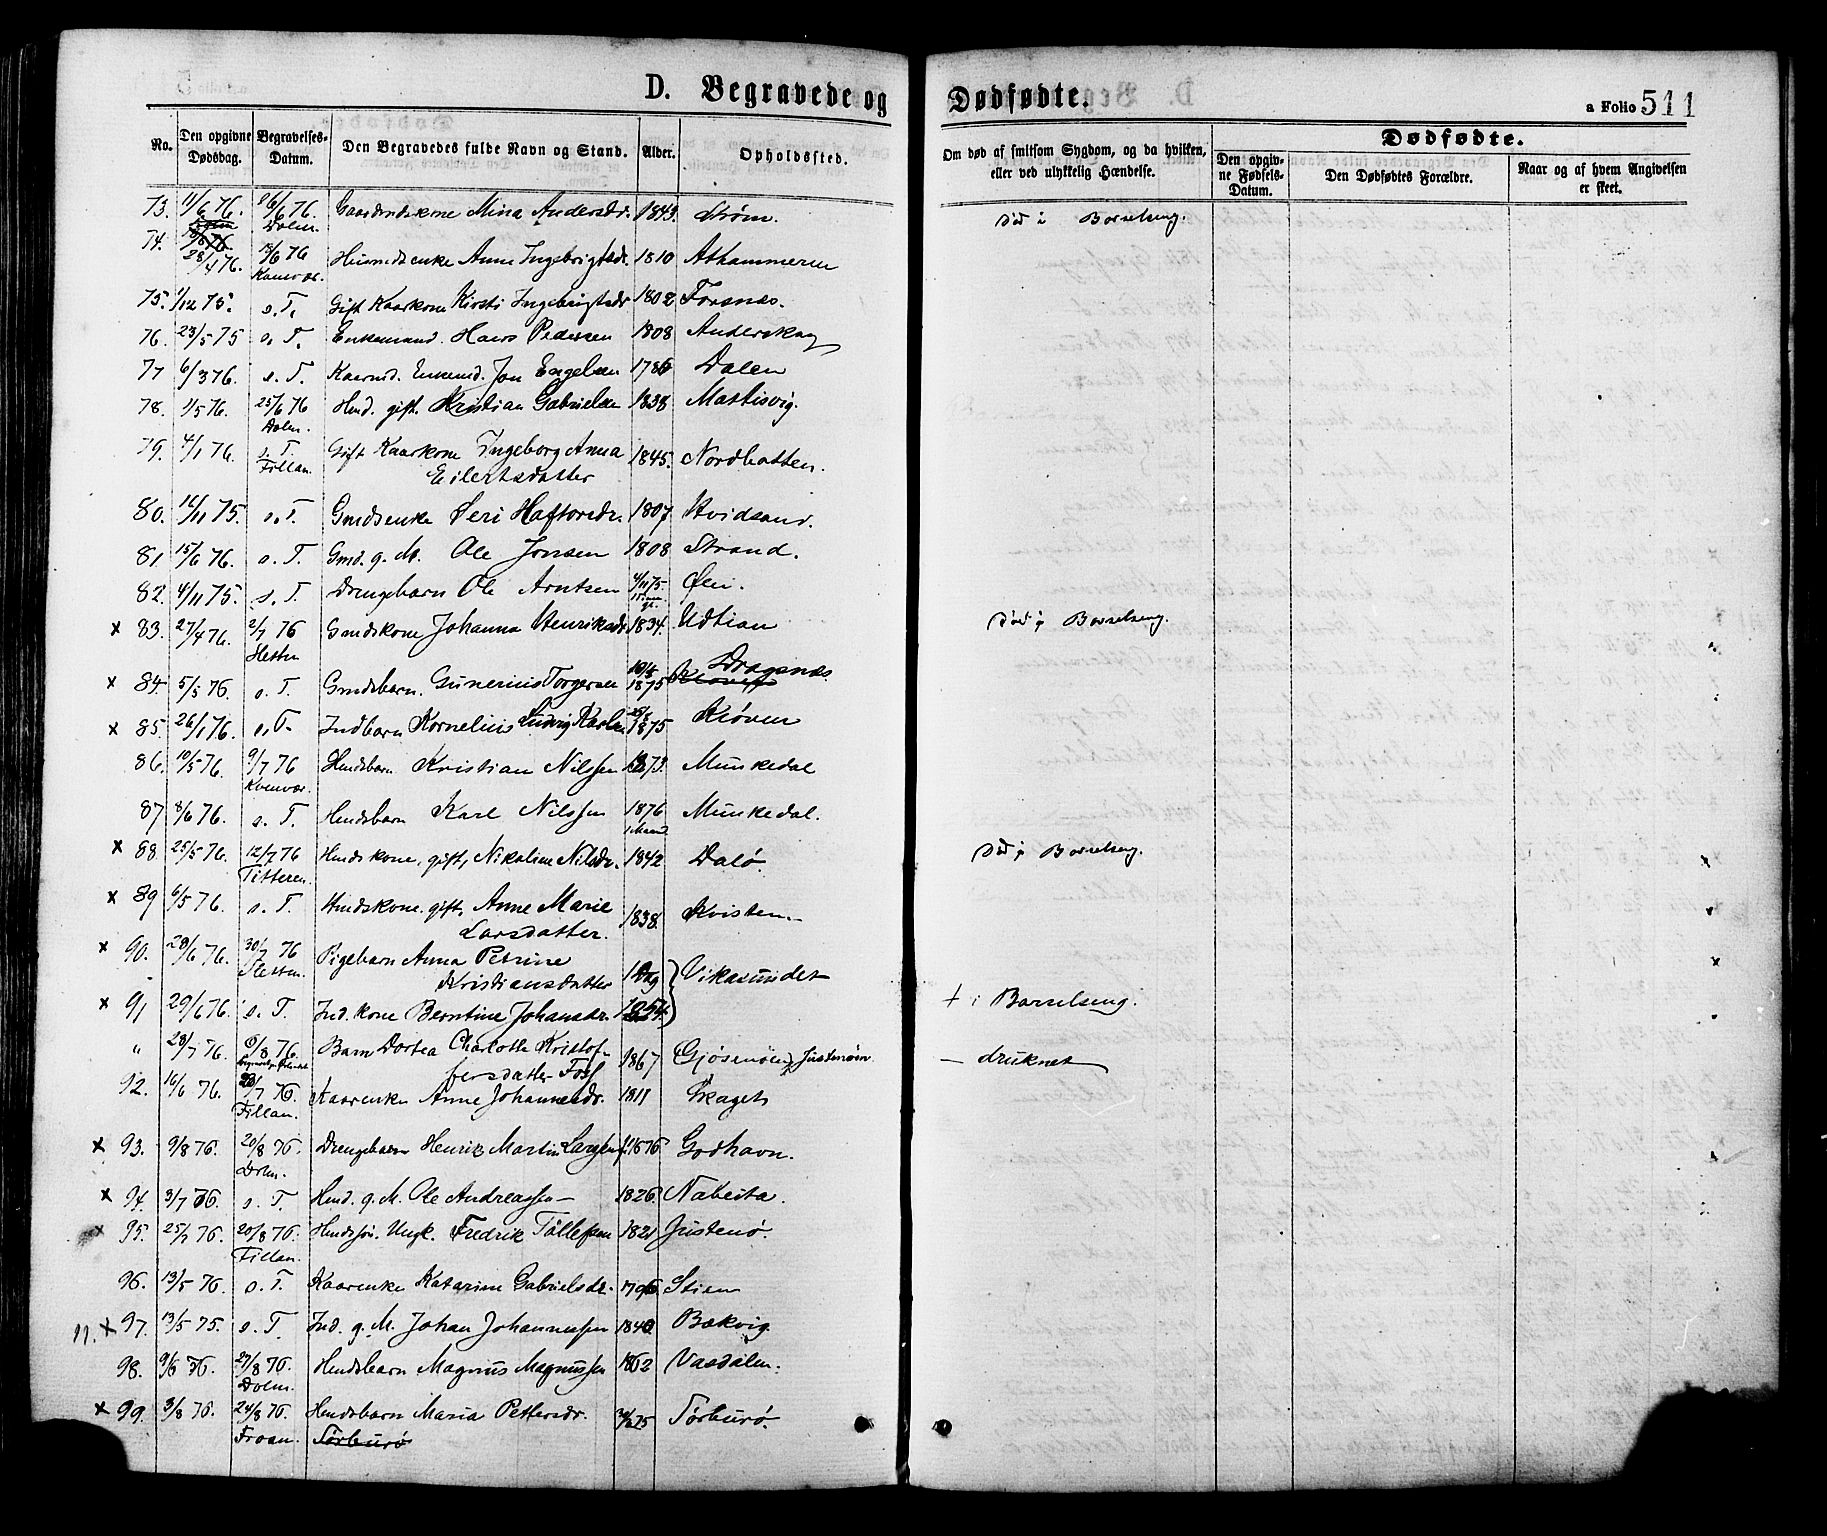 D. Begravede og Dødfødte.
a Folio 511
No.
Den opgivne Dødsdag.
Begravelses-Datum.
Den Begravedes fulde Navn og Stand.
Alder.
Opholdssted.
Om død af smitsom Sygdom, og da hvilken, eller ved ulykkelig Hændelse.
Dødfødte.
Den opgivne Fødsels-Datum.
Den Dødfødtes Forældre.
Naar og af hvem Angivelsen er skeet.
73. 11/6 76. 6/6 76. Dolm. Gaardmdskone Mina Andersdr. 1843. Strøm. Død i Barselseng.
74. 28/4 76. 18/6 76 Husmdsenke Anne Ingebrigtsdr. 1810 Athammeren
75. 1/12 75. s. T. Gift Kaarkone Kirsti Ingebrigtsdr 1802 Forsnes.
76. 23/5 75 s. T. Enkemand. Hans Pedersen 1808 Anderskog
77 6/3 76. s. T. Kaarmd. Enkemd. Jon Engelsen 1786 Dalen
78. 1/5 76. 25/6 76 Dolm. Hmd. gift. Kristian Gabrielsen 1838 Mastisvig.
79. 4/1 76. s. T. Fillan. Gift Kaarkone Ingeborg Anna Eilertsdatter 1845. Nordbotten.
80. 12/11 75. s. T. Gmdsenke Seri Haftorsdr. 1807 Hvidsand.
81 15/6 76. s. T. Gmd. g. M. Ole Jonsen 1808 Strand.
82. 4/11 75. s. T. Drengebarn Ole Arntsen 4/11 75 Øen.
x 83. 27/4 76. 2/7 76 Hesten Gmdskone Johanna Henriksdr 1834. Udtian Død i Barselseng.
x 84. 5/5 76. s. T. Gmdsbarn. Gunerius Torgersen 1875 Dragsnes
x 85. 26/1 76. s. T. Indbarn Kornelius Ludvig Karlsen 1875 Kløven
86. 10/5 76. 9/7 76 Kvenvær. Hmdsbarn Kristian Nilssen 1873. Munkedal
87 8/6 76. s. T. Hmdsbarn Karl Nilssen 1876 Munkedal.
x 88. 25/5 76. 12/7 76 Titteren. Hmdskone, gift, Nikoline Nilsdr. 1842 Dalø. Død i Barselseng.
x 89 6/5 76. s. T. Hmdskone. gift, Anne Marie Larsdatter. 1838. Kvisten.
x 90. 28/6 76. 30/7 76 Hesten. Pigebarn Anna Petrine Kristiansdatter 1 Dag Vikasundet
x 91 29/6 76. s. T. Ind. kone Berntine Johansdr. 1854. † i Barselseng.
" 28/7 76. 6/8 76. Barn Dortea Charlotte Kristoffersdatter Foss 1867 Gjøsenøen, Justenøen — druknet
92. 16/6 76. 23/7 76. Fillan. Kaarenke Anne Johannesdr. 1811 Skaget
x 93. 9/8 76. 20/8 76. Dolm. Drengebarn Henrik Martin Larssen 1/6 76 Godhavn.
x 94. 3/7 76. s. T. Hmd. g. M. Ole Andreassen 1826. Nabeita.
x 95. 25/7 76. 20/8 76. Fillan. Hmdssøn. Ungk. Fredrik Tøllefsen 1821 Justenø.
96. 13/5 76. s. T. Kaarenke Katarine Gabrielsdr. 1796 Stien
n. x 97. 13/5 75. s. T. Ind. g. M. Johan Johannessen 1840 Bækvig
98. 9/6 76. 27/8 76. Dolm. Hmdsbarn Magnus Magnussen 1862 Vasdalen.
x 99. 3/8 76. 24/8 76. Froan. Hmdsbarn Maria Pettersdr. 75 Sørburø.
Sørburø